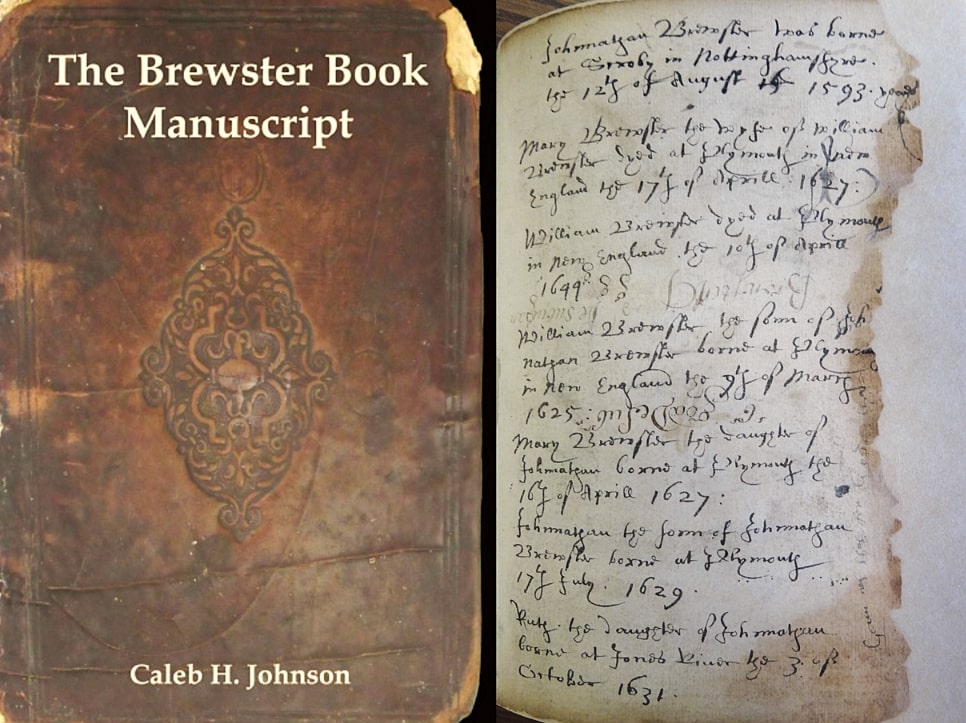 The Brewster Book
Manuscript
Caleb H. Johnson
Johnnathan Brewster was borne
at Scroby in Nottinghamshyre.
the 12th of August 1593. yeare
Mary Brewster the wyfe of William
Brewster dyed at Plymouth in New
England the 17th of Aprill 1627:
William Brewster dyed at Plymouth
in new England the 10th of Aprill
1644
William Brewster the sonn of John
nathan Brewster borne at Plymo
in new England the 9th of March
1625:
Mary Brewster the daughter of
Johnnathan borne at Plymouth the
16th of Aprill 1627:
Johnnathan the sonn of Johnnathan
Brewster borne at Plymouth
17th July. 1629.
Ruth the daughter of Johnnathan
borne at Jones River the 3 of
October 1631.